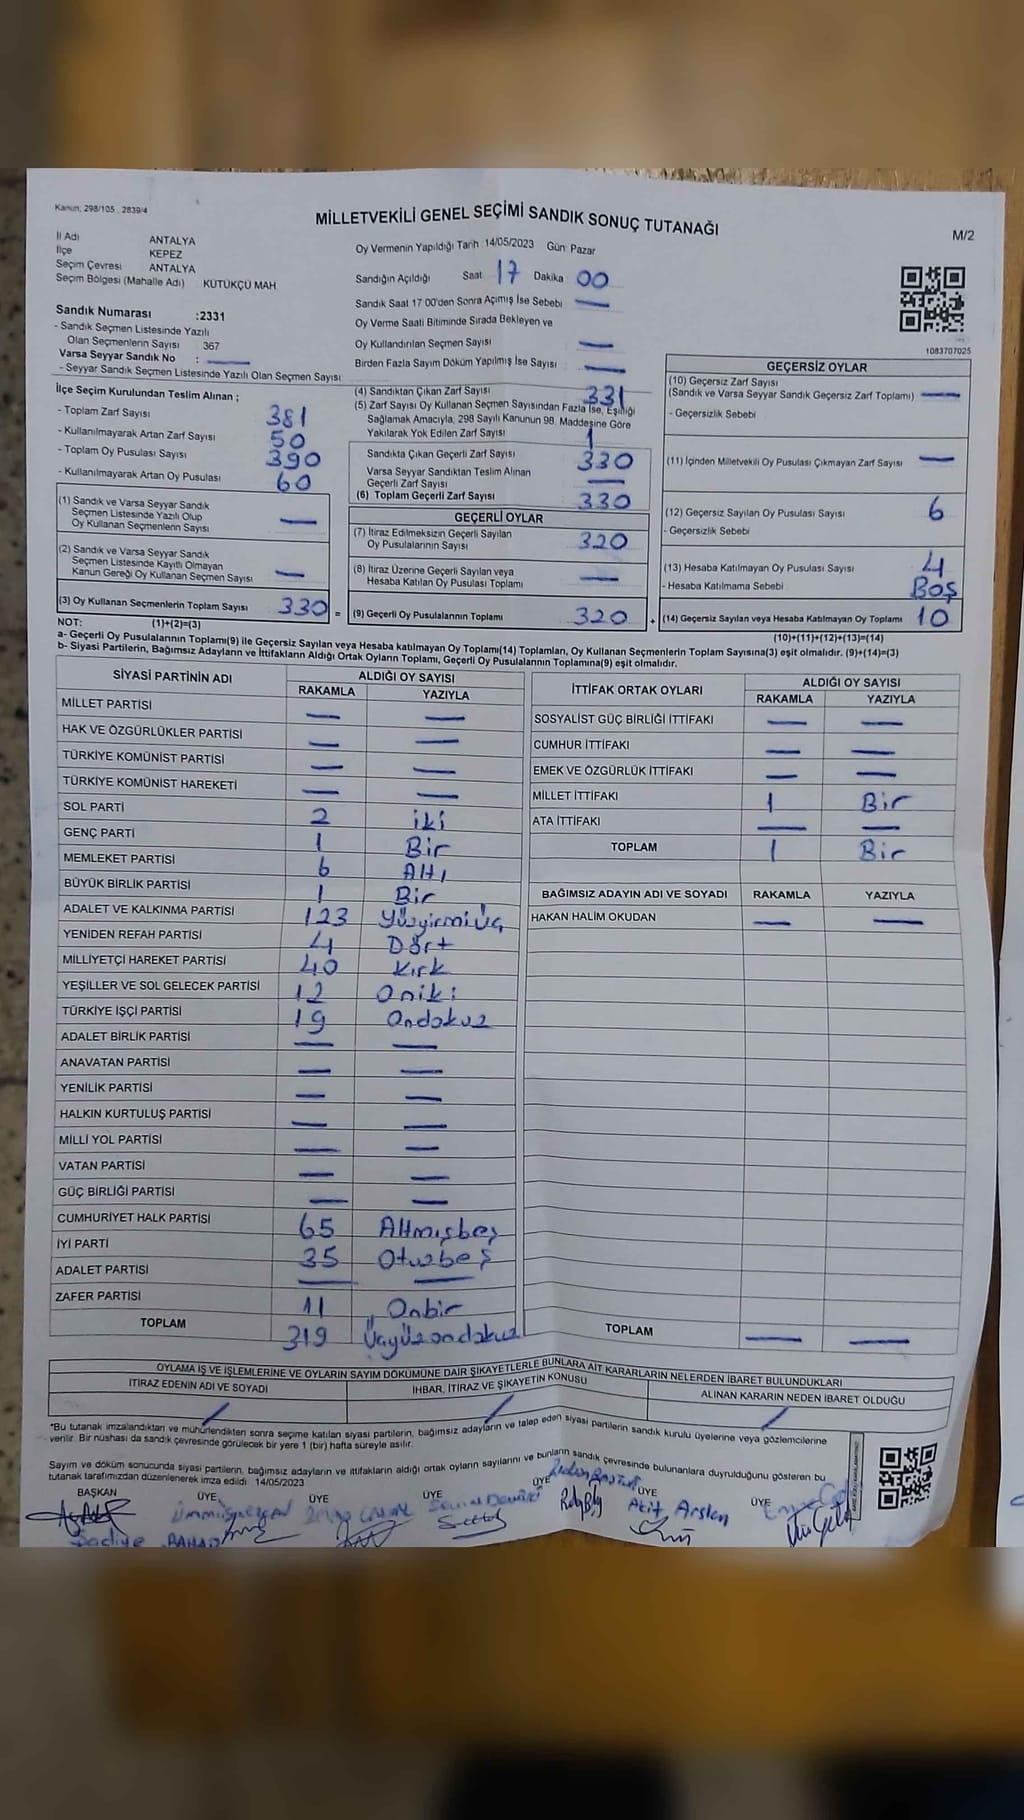 Kanun; 298/105 , 2839/4
MİLLETVEKİLİ GENEL SEÇİMİ SANDIK SONUÇ TUTANAĞI
M/2
İl Adı ANTALYA
İlçe KEPEZ
Seçim Çevresi ANTALYA
Seçim Bölgesi (Mahalle Adı) KÜTÜKÇÜ MAH
Sandık Numarası :2331
- Sandık Seçmen Listesinde Yazılı
Olan Seçmenlerin Sayısı 367
Varsa Seyyar Sandık No : —
- Seyyar Sandık Seçmen Listesinde Yazılı Olan Seçmen Sayısı:
Oy Vermenin Yapıldığı Tarih 14/05/2023 Gün: Pazar
Sandığın Açıldığı Saat 17 Dakika 00
Sandık Saat 17 00'den Sonra Açımış İse Sebebi —
Oy Verme Saati Bitiminde Sırada Bekleyen ve
Oy Kullandırılan Seçmen Sayısı —
Birden Fazla Sayım Döküm Yapılmış İse Sayısı —
1083707025
İlçe Seçim Kurulundan Teslim Alınan ;
- Toplam Zarf Sayısı 381
- Kullanılmayarak Artan Zarf Sayısı 50
- Toplam Oy Pusulası Sayısı 390
- Kullanılmayarak Artan Oy Pusulası 60
(1) Sandık ve Varsa Seyyar Sandık
Seçmen Listesinde Yazılı Olup
Oy Kullanan Seçmenlerin Sayısı —
(2) Sandık ve Varsa Seyyar Sandık
Seçmen Listesinde Kayıtlı Olmayan
Kanun Gereği Oy Kullanan Seçmen Sayısı —
(3) Oy Kullanan Seçmenlerin Toplam Sayısı 330 =
(4) Sandıktan Çıkan Zarf Sayısı 331
(5) Zarf Sayısı Oy Kullanan Seçmen Sayısından Fazla İse, Eşitliği
Sağlamak Amacıyla, 298 Sayılı Kanunun 98. Maddesine Göre
Yakılarak Yok Edilen Zarf Sayısı 1
Sandıkta Çıkan Geçerli Zarf Sayısı 330
Varsa Seyyar Sandıktan Teslim Alınan
Geçerli Zarf Sayısı —
(6) Toplam Geçerli Zarf Sayısı 330
GEÇERLİ OYLAR
(7) İtiraz Edilmeksizin Geçerli Sayılan
Oy Pusulalarının Sayısı 320
(8) İtiraz Üzerine Geçerli Sayılan veya
Hesaba Katılan Oy Pusulası Toplamı —
(9) Geçerli Oy Pusulalarının Toplamı 320 +
GEÇERSİZ OYLAR
(10) Geçersiz Zarf Sayısı
(Sandık ve Varsa Seyyar Sandık Geçersiz Zarf Toplamı) —
- Geçersizlik Sebebi
(11) İçinden Milletvekili Oy Pusulası Çıkmayan Zarf Sayısı —
(12) Geçersiz Sayılan Oy Pusulası Sayısı 6
- Geçersizlik Sebebi
(13) Hesaba Katılmayan Oy Pusulası Sayısı 4
- Hesaba Katılmama Sebebi Boş
(14) Geçersiz Sayılan veya Hesaba Katılmayan Oy Toplamı 10
NOT: (1)+(2)=(3)
(10)+(11)+(12)+(13)=(14)
a- Geçerli Oy Pusulalarının Toplamı(9) ile Geçersiz Sayılan veya Hesaba katılmayan Oy Toplamı(14) Toplamları, Oy Kullanan Seçmenlerin Toplam Sayısına(3) eşit olmalıdır. (9)+(14)=(3)
b- Siyasi Partilerin, Bağımsız Adayların ve İttifakların Aldığı Ortak Oyların Toplamı, Geçerli Oy Pusulalarının Toplamına(9) eşit olmalıdır.
SİYASİ PARTİNİN ADI ALDIĞI OY SAYISI
RAKAMLA YAZIYLA
MİLLET PARTİSİ — —
HAK VE ÖZGÜRLÜKLER PARTİSİ — —
TÜRKİYE KOMÜNİST PARTİSİ — —
TÜRKİYE KOMÜNİST HAREKETİ — —
SOL PARTİ 2 iki
GENÇ PARTİ 1 Bir
MEMLEKET PARTİSİ 6 Altı
BÜYÜK BİRLİK PARTİSİ 1 Bir
ADALET VE KALKINMA PARTİSİ 123 Yüzyirmiüç
YENİDEN REFAH PARTİSİ 4 Dört
MİLLİYETÇİ HAREKET PARTİSİ 40 Kırk
YEŞİLLER VE SOL GELECEK PARTİSİ 12 Oniki
TÜRKİYE İŞÇİ PARTİSİ 19 Ondokuz
ADALET BİRLİK PARTİSİ — —
ANAVATAN PARTİSİ — —
YENİLİK PARTİSİ — —
HALKIN KURTULUŞ PARTİSİ — —
MİLLİ YOL PARTİSİ — —
VATAN PARTİSİ — —
GÜÇ BİRLİĞİ PARTİSİ — —
CUMHURİYET HALK PARTİSİ 65 Altmışbeş
İYİ PARTİ 35 Otuzbeş
ADALET PARTİSİ — —
ZAFER PARTİSİ 11 Onbir
TOPLAM 319 Üçyüzondokuz
İTTİFAK ORTAK OYLARI ALDIĞI OY SAYISI
RAKAMLA YAZIYLA
SOSYALİST GÜÇ BİRLİĞİ İTTİFAKI — —
CUMHUR İTTİFAKI — —
EMEK VE ÖZGÜRLÜK İTTİFAKI — —
MİLLET İTTİFAKI 1 Bir
ATA İTTİFAKI — —
TOPLAM 1 Bir
BAĞIMSIZ ADAYIN ADI VE SOYADI RAKAMLA YAZIYLA
HAKAN HALİM OKUDAN — —
TOPLAM — —
OYLAMA İŞ VE İŞLEMLERİNE VE OYLARIN SAYIM DÖKÜMÜNE DAİR ŞİKAYETLERLE BUNLARA AİT KARARLARIN NELERDEN İBARET BULUNDUKLARI
İTİRAZ EDENİN ADI VE SOYADI İHBAR, İTİRAZ VE ŞİKAYETİN KONUSU ALINAN KARARIN NEDEN İBARET OLDUĞU
/ / /
*Bu tutanak imzalandıktan ve mühürlendikten sonra seçime katılan siyasi partilerin, bağımsız adayların ve talep eden siyasi partilerin sandık kurulu üyelerine veya gözlemcilerine
verilir. Bir nüshası da sandık çevresinde görülecek bir yere 1 (bir) hafta süreyle asılır.
Sayım ve döküm sonucunda siyasi partilerin, bağımsız adayların ve ittifakların aldığı ortak oyların sayılarını ve bunların sandık çevresinde bulunanlara duyrulduğunu gösteren bu
tutanak tarafımızdan düzenlenerek imza edildi. 14/05/2023
BAŞKAN ÜYE ÜYE ÜYE ÜYE ÜYE ÜYE
Atif Arslan
Sadiye